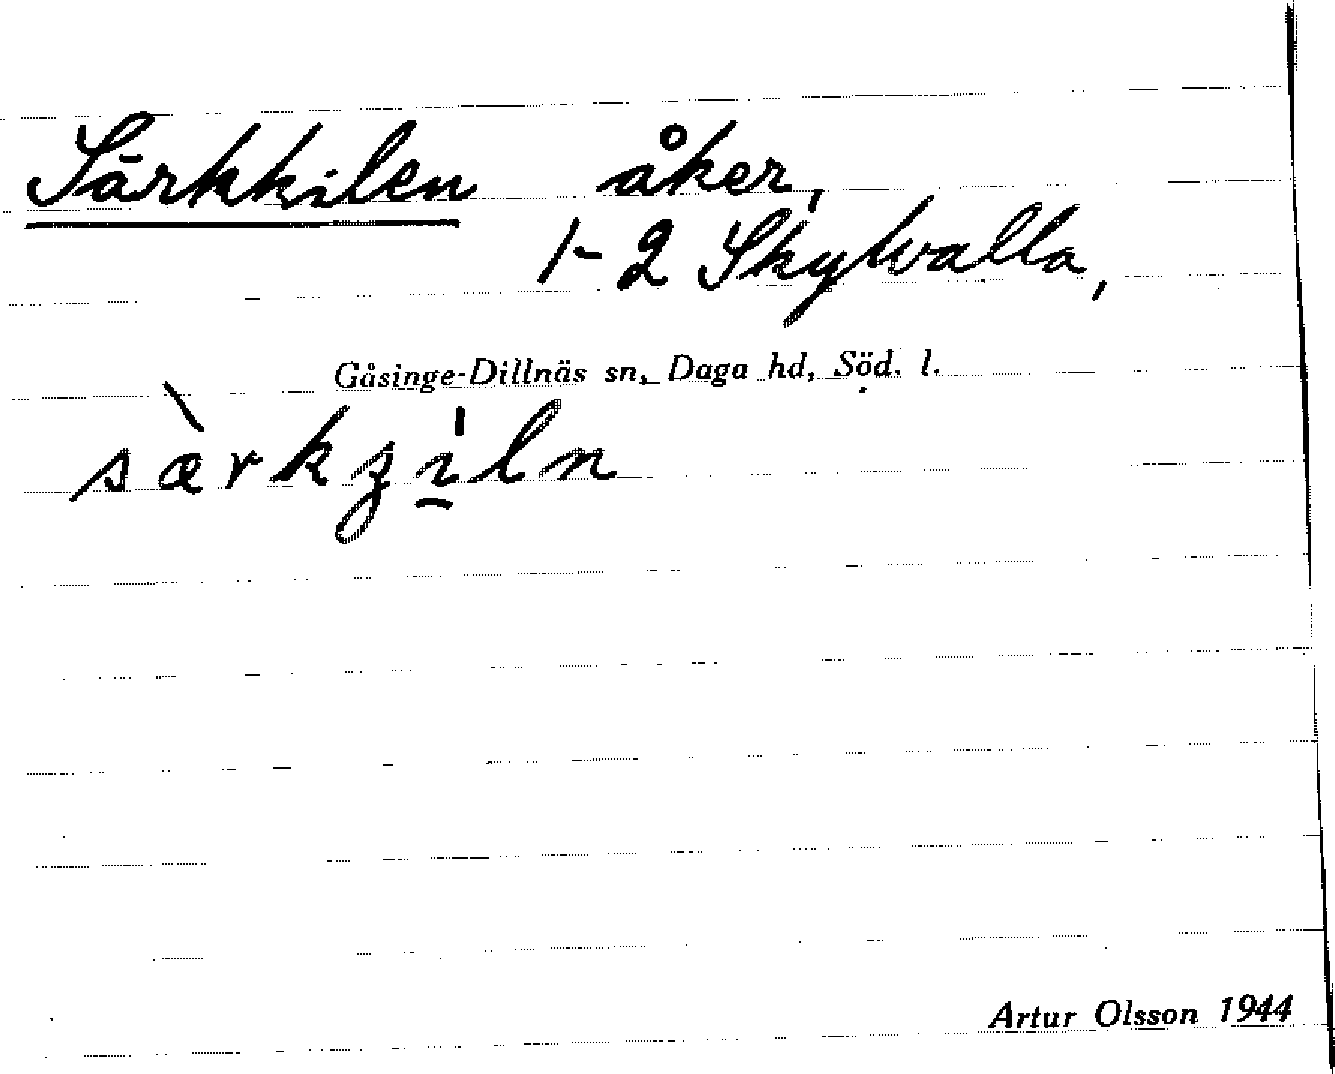 Särkkilen åker,
1-2 Skytvalla,
Gåsinge-Dillnäs sn, Daga hd, Söd. l.
sàrkʒiln
Artur Olsson 1944